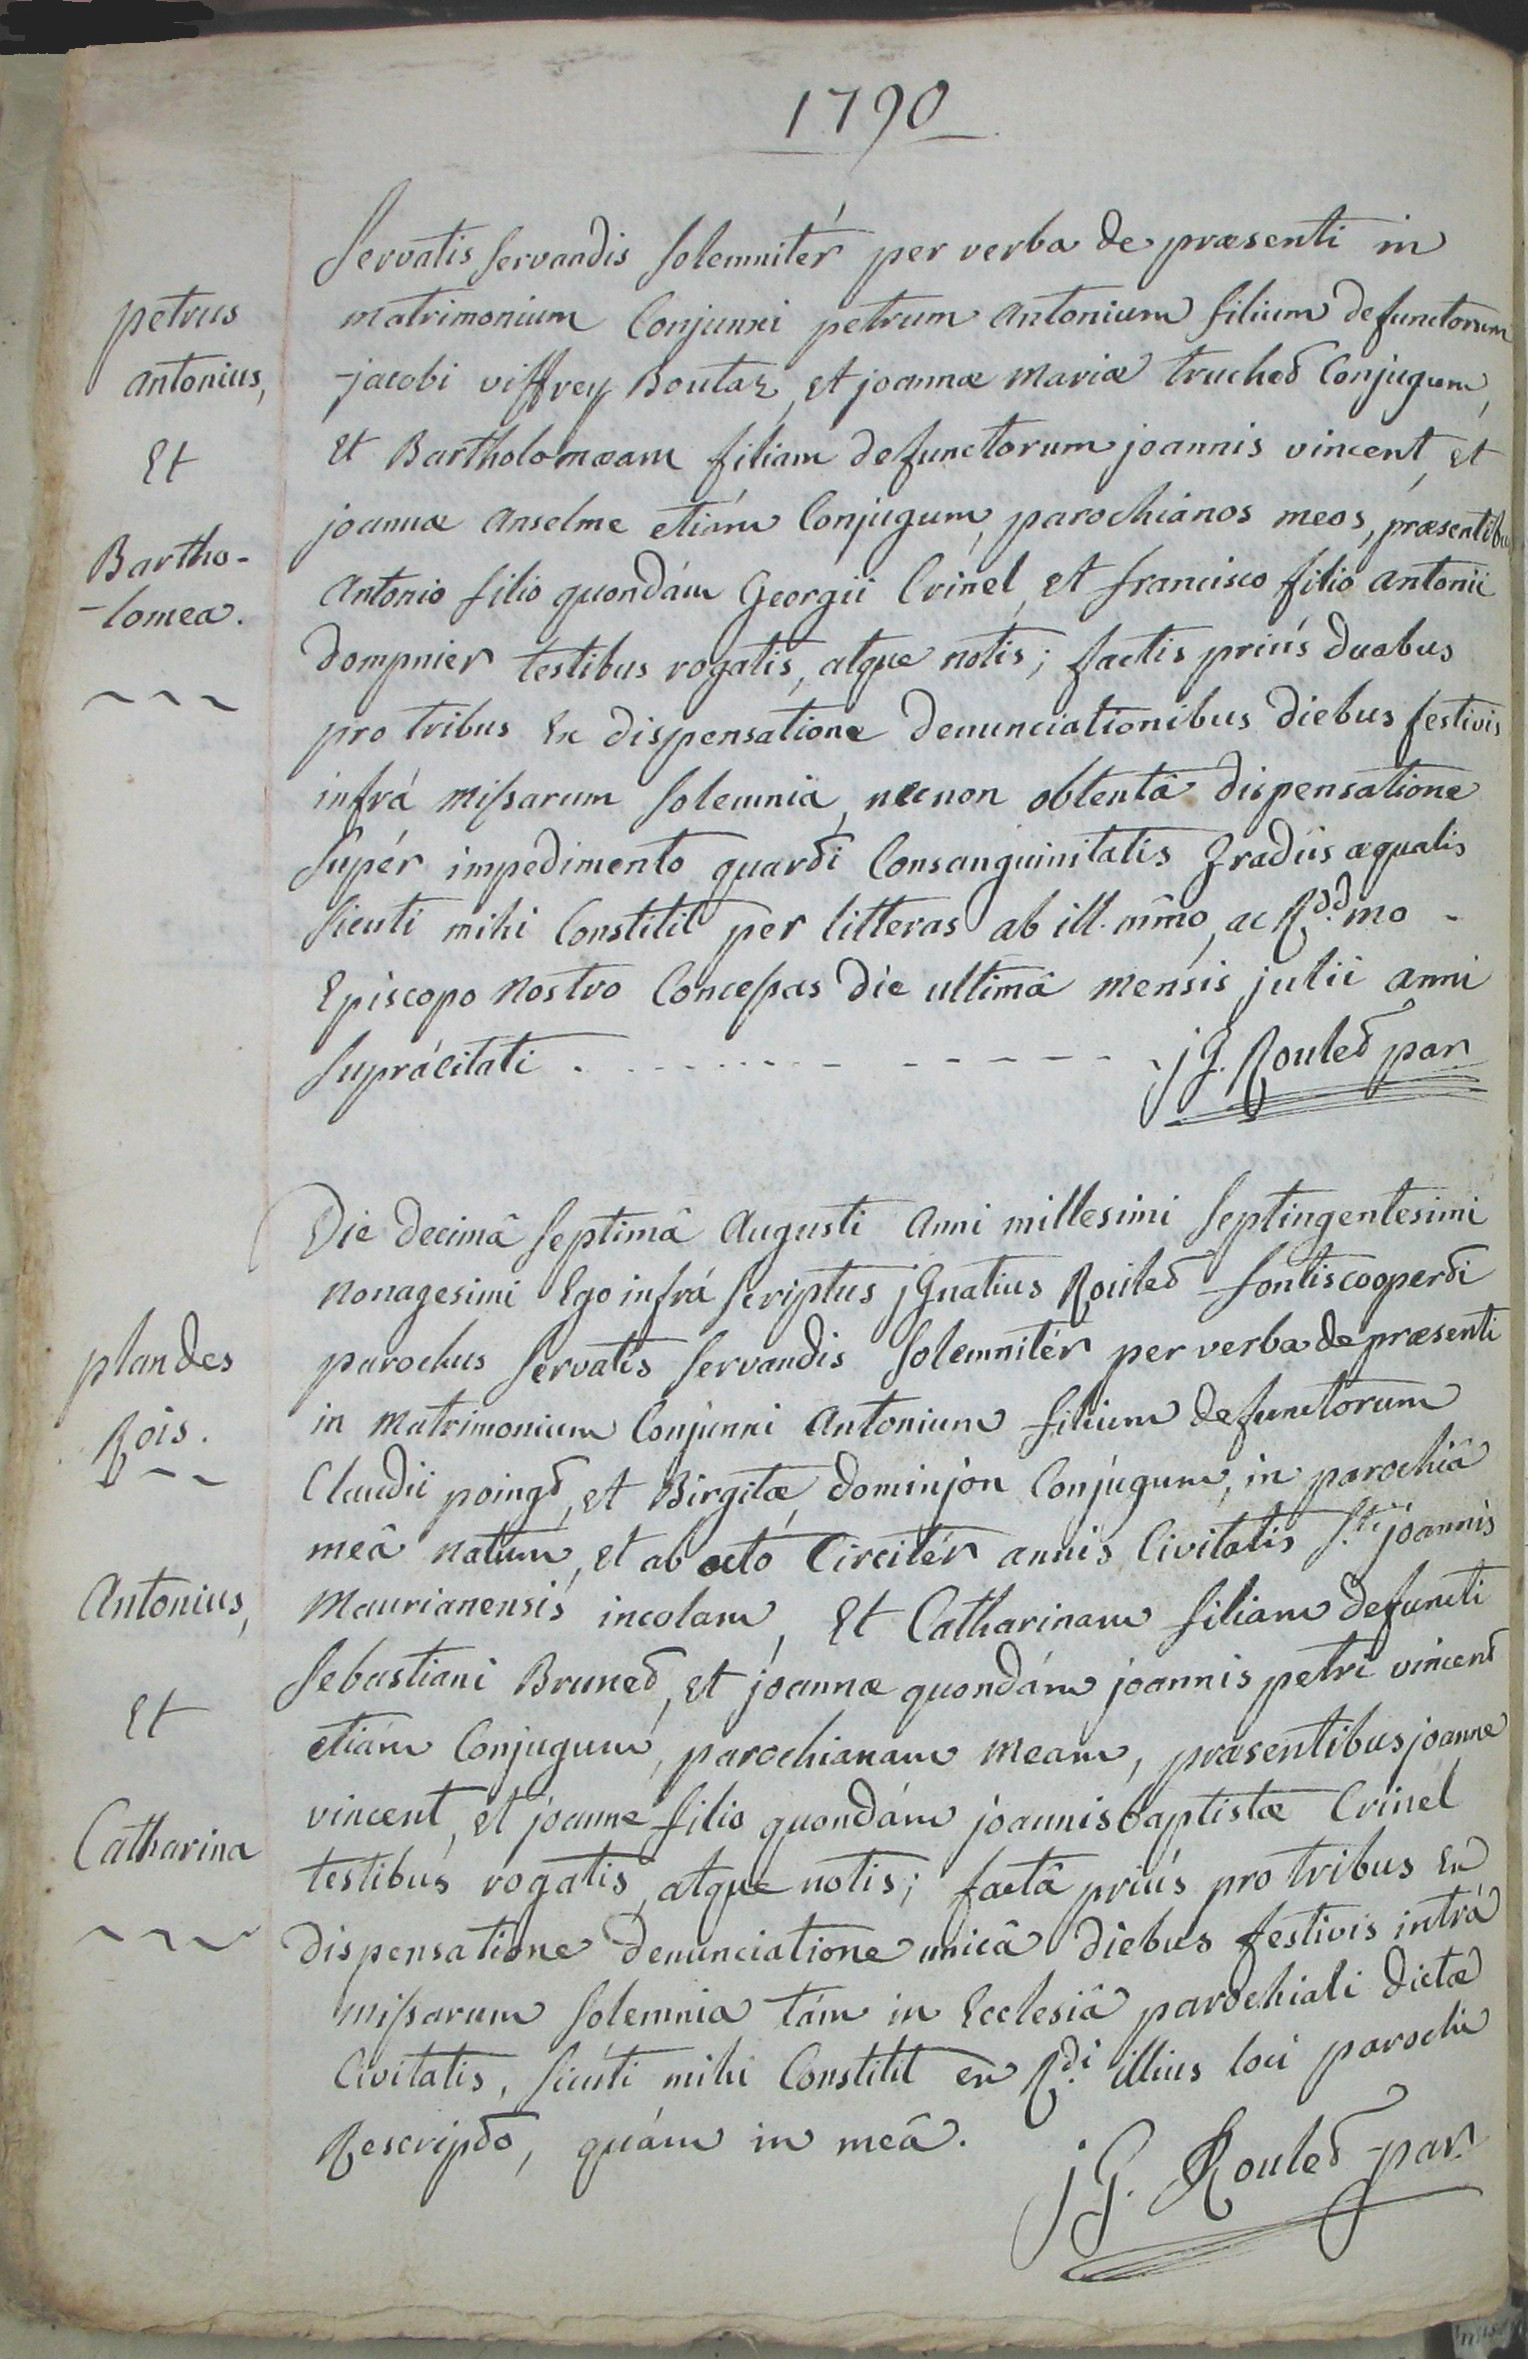 1790
Servatis Servandis Solemnitér per verba de præsenti in
petrus
matrimonium Conjunxi petrum antonium filium defunctorum
antonius,
jacobi viffrey Boutaz, et joannæ mariæ truchet Conjugum,
Et
et Bartholomæam filiam defunctorum joannis vincent, et
joannæ anselme etiám Conjugum, parochianos meos, præsentibus
Bartho-
antonio filio quondám Georgii Crinel, et francisco filio antonii
-lomea.
dompnier testibus rogatis, atque notis; factis priús duabus
pro tribus Ex dispensatione denunciationibus diebus festivis
infrá missarum solemnia, necnon obtentâ dispensatione
Supér impedimento quarti Consanguinitatis Gradûs æqualis
Sicuti mihi Constitit per litteras ab ill.mmo, ac R.ddmo -
Episcopo nostro Concessas die ultimâ mensis julii anni
suprácitati . - - - - - - - - - - jG. Roulet par
Die decimâ Septimâ Augusti anni millesimi Septingentesimi
nonagesimi Ego infrá scriptus jGnatius Roulet fontiscooperti
plan des
parochus Servatis Servandis Solemnitér per verba de præsenti
Rois.
in matrimonium Conjunxi antonium filium defunctorum
Claudii poingt, et Birgitæ dominjon Conjugum, in parochiâ
meâ natum, et ab octó Circitér annis Civitatis S.ti joannis
Antonius,
Maurianensis incolam, Et Catharinam filiam defuncti
Sebastiani Brunet, et joannæ quondám joannis petri vincent
Et
etiám Conjugum, parochianam meam, præsentibus joanne
vincent, et joanne filio quondám joannis baptistæ Crinel
Catharina
testibus rogatis, atque notis; factâ priús pro tribus Ex
dispensatione denunciatione unicâ diebus festivis intrá
missarum Solemnia tám in Ecclesiâ parochiali dictæ
Civitatis, Sicúti mihi Constitit ex R.di illius loci parochi
Rescripto, quám in meâ.
jG. Roulet par.